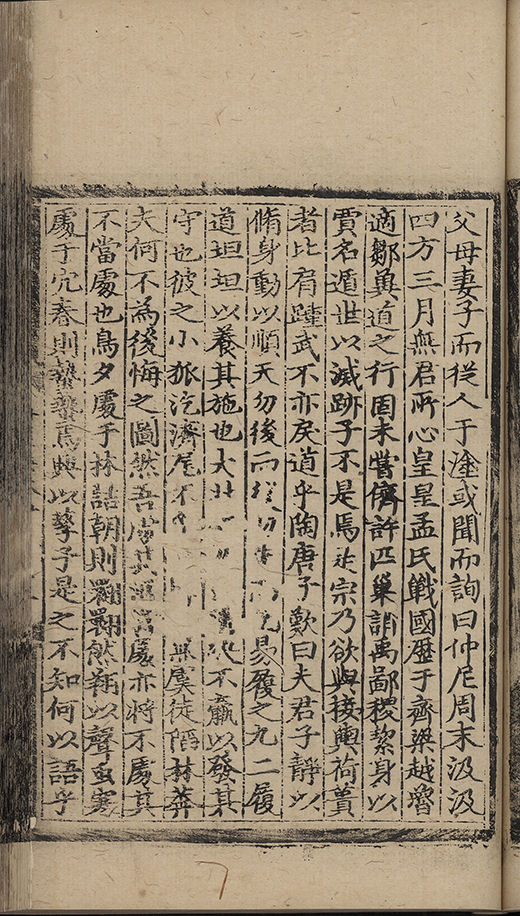 父母妻子而從人于塗或聞而詢曰仲尼周末汲汲
四方三月無君所心皇皇孟氏戰國歷于齊梁越魯
適鄒冀道之行固未嘗儕許匹巢誚禹鄙稷絜身以
賈名遁世以滅跡子不是焉宗乃欲與接輿荷蕢
者比肩踵武不亦戾道乎陶唐子歎曰夫君子靜以
脩身動以順天勿後而易履之九二履
道坦坦以養其施也大壯不羸以發其
守也彼之小狐汔濟尾不無虞徒陷林莽
夫何不為後悔之圖然吾處亦將不處其
不當處也鳥夕處于林詰朝則翾翾然翔以聲虫寒
處于穴春則蟄蟄焉興以孳子是之不知何以語乎
7